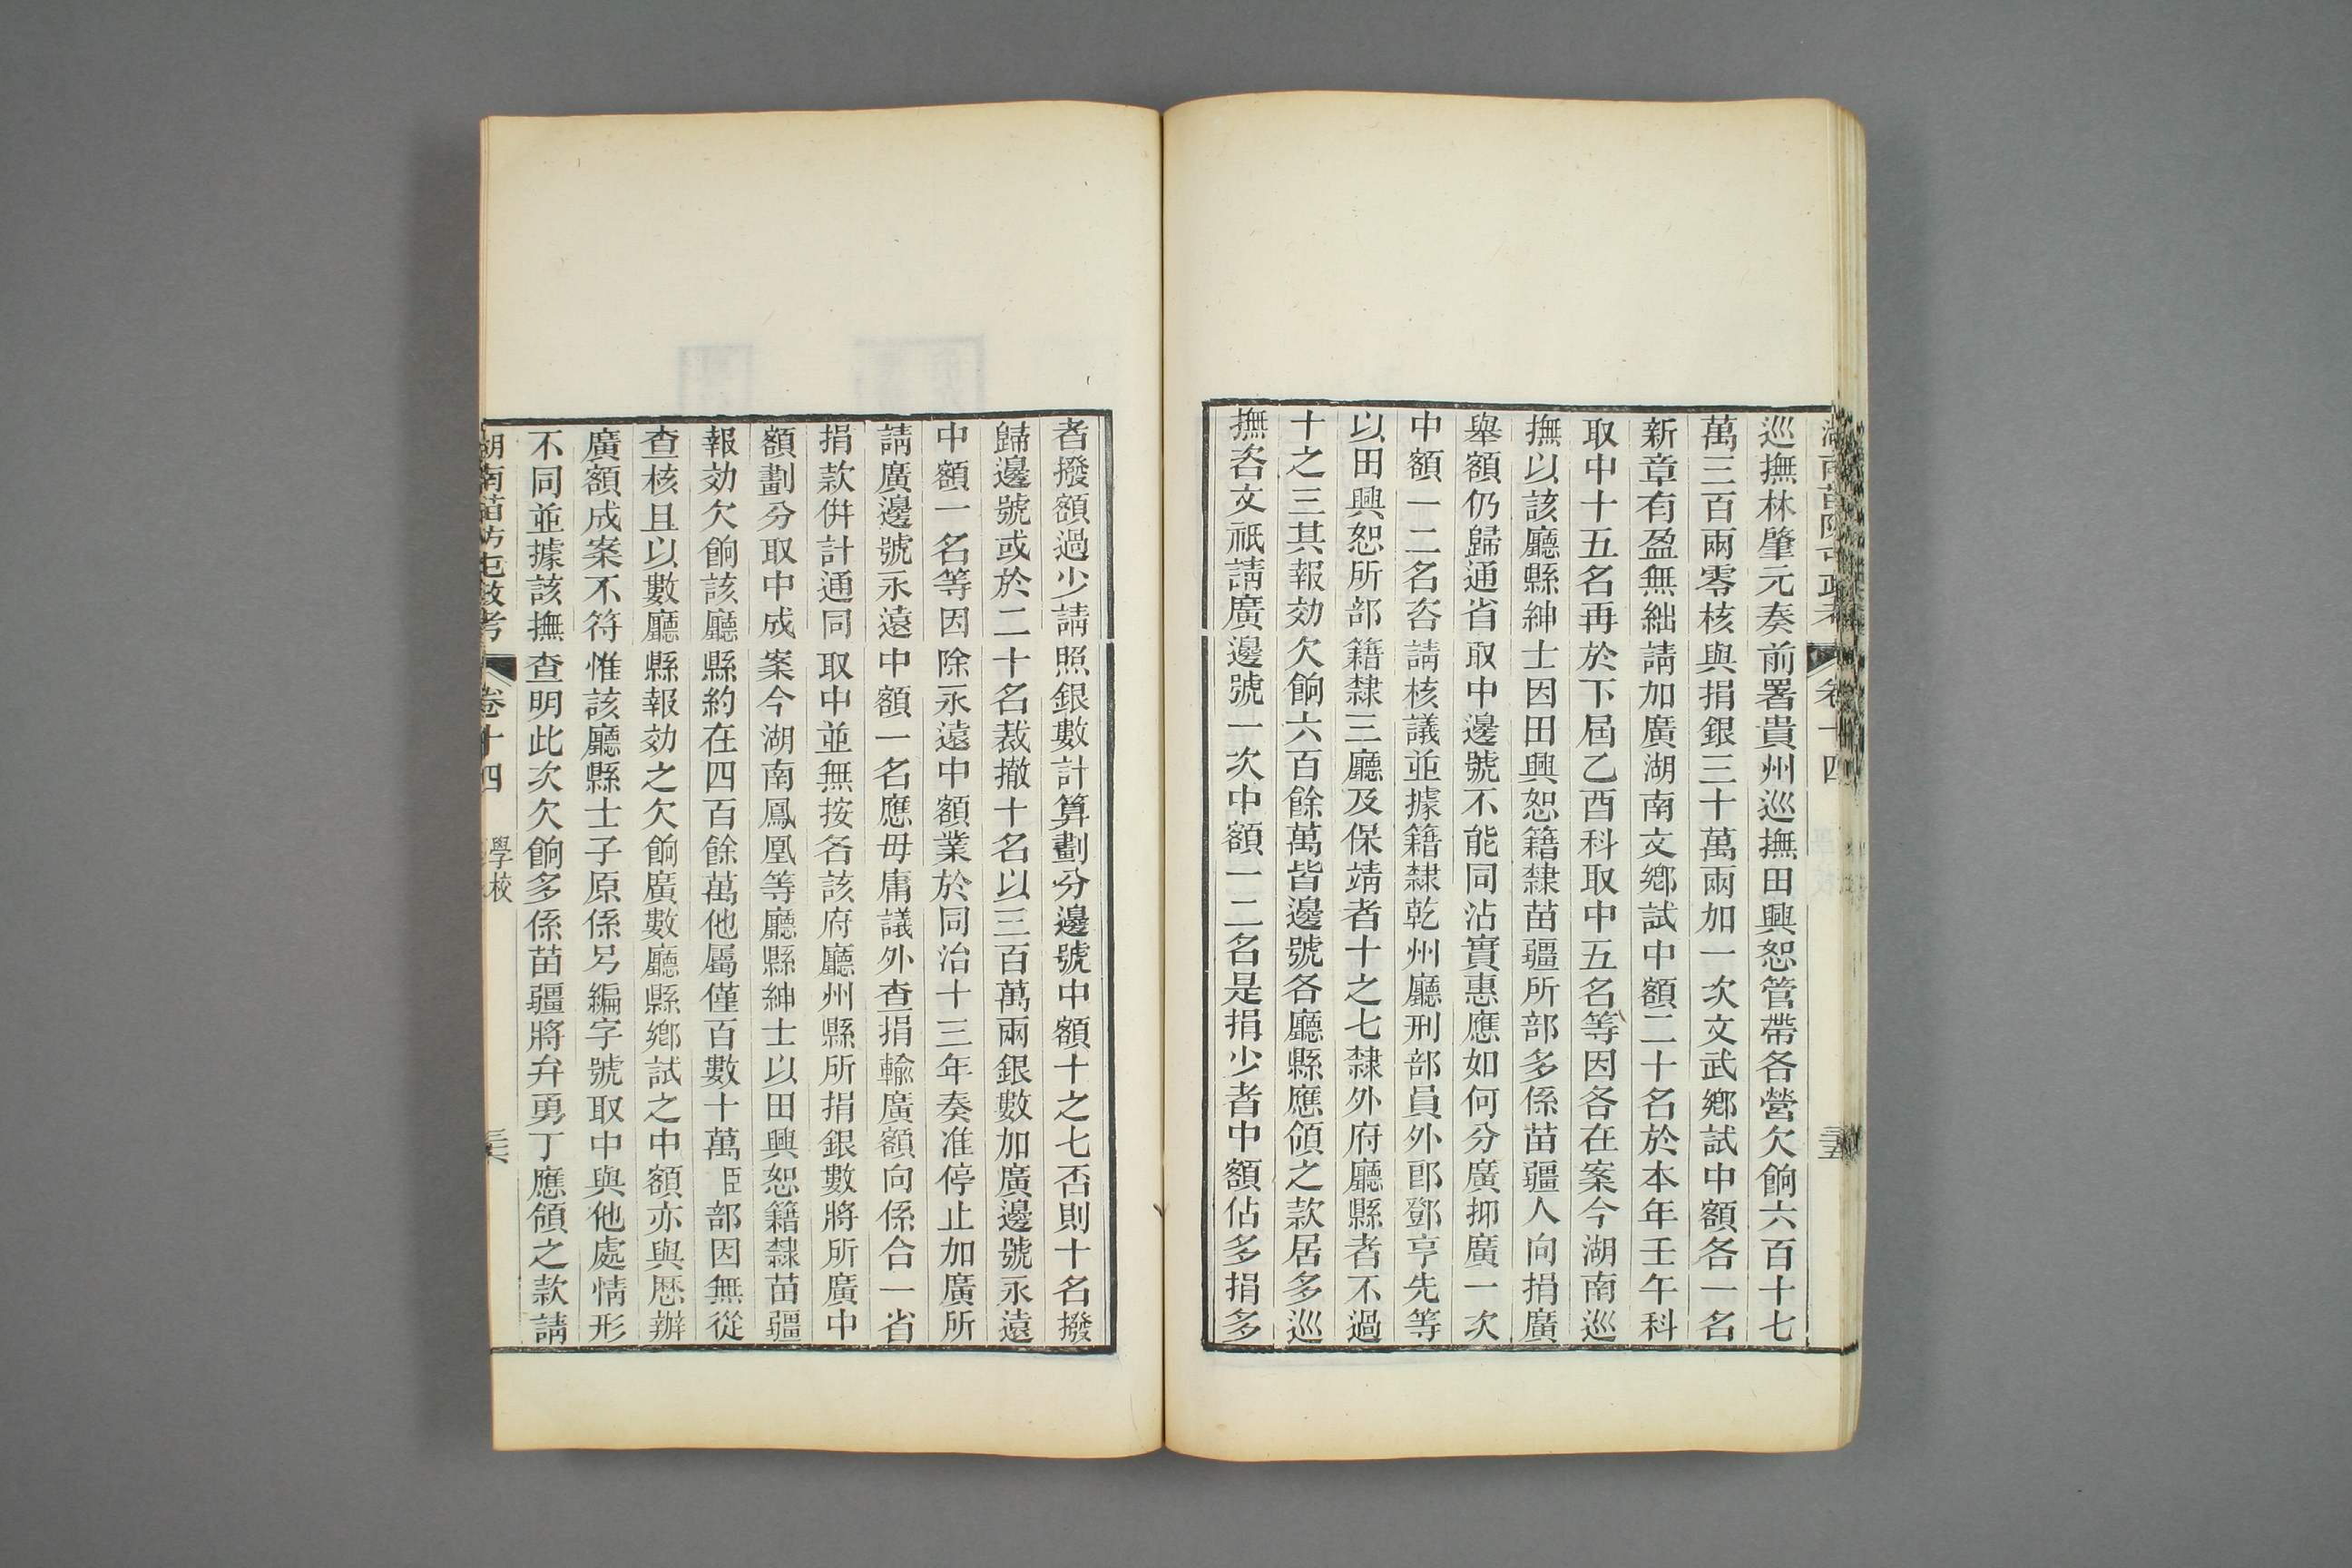 巡撫林肇元奏前署貴州巡撫田興恕管帶各營欠餉六百十七
萬三百兩零核與捐銀三十萬兩加一次文武鄉試中額各一名
新章有盈無絀請加廣湖南文鄉試中額二十名於本年壬午科
取中十五名再於下屆乙酉科取中五名等因各在案今湖南巡
撫以該廳縣紳士因田興恕籍隸苗疆所部多係苗疆人向捐廣
舉額仍歸通省取中邊號不能同沾實惠應如何分廣抑廣一次
中額一二名咨請核議並據籍隸乾州廳刑部員外郎鄧亨先等
以田興恕所部籍隸三廳及保靖者十之七隸外府廳縣者不過
十之三其報効欠餉六百餘萬皆邊號各廳縣應領之款居多巡
撫咨文祇請廣邊號一次中額一二名是捐少者中額佔多捐多
者撥額過少請照銀數計算劃分邊號中額十之七否則十名撥
歸邊號或於二十名裁撤十名以三百萬兩銀數加廣邊號永遠
中額一名等因除永遠中額業於同治十三年奏准停止加廣所
請廣邊號永遠中額一名應毋庸議外查捐輸廣額向係合一省
捐款併計通同取中並無按各該府廳州縣所捐銀數將所廣中
額劃分取中成案今湖南鳳凰等廳縣紳士以田興恕籍隸苗疆
報効欠餉該廳縣約在四百餘萬他屬僅百數十萬臣部因無從
查核且以數廳縣報効之欠餉廣數廳縣鄉試之中額亦與歷辦
廣額成案不符惟該廳縣士子原係另編字號取中與他處情形
不同並據該撫查明此次欠餉多係苗疆將弁勇丁應領之款請
湖南苗防屯政考 卷十四 學校